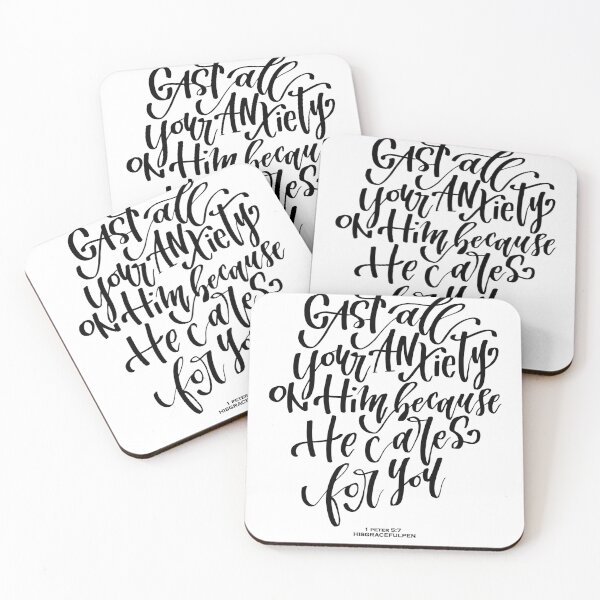 Cast all
your ANXiety
ON Him becau
cares
Cast all
your ANXiety
ON Him because
He cares
Cast all
your ANXiety
ON Him because
He cares
for yo
1 PETER
HISGRACEFUL
Cast all
your ANXiety
ON Him because
He cares
for you
1 PETER 5:7
HISGRACEFULPEN